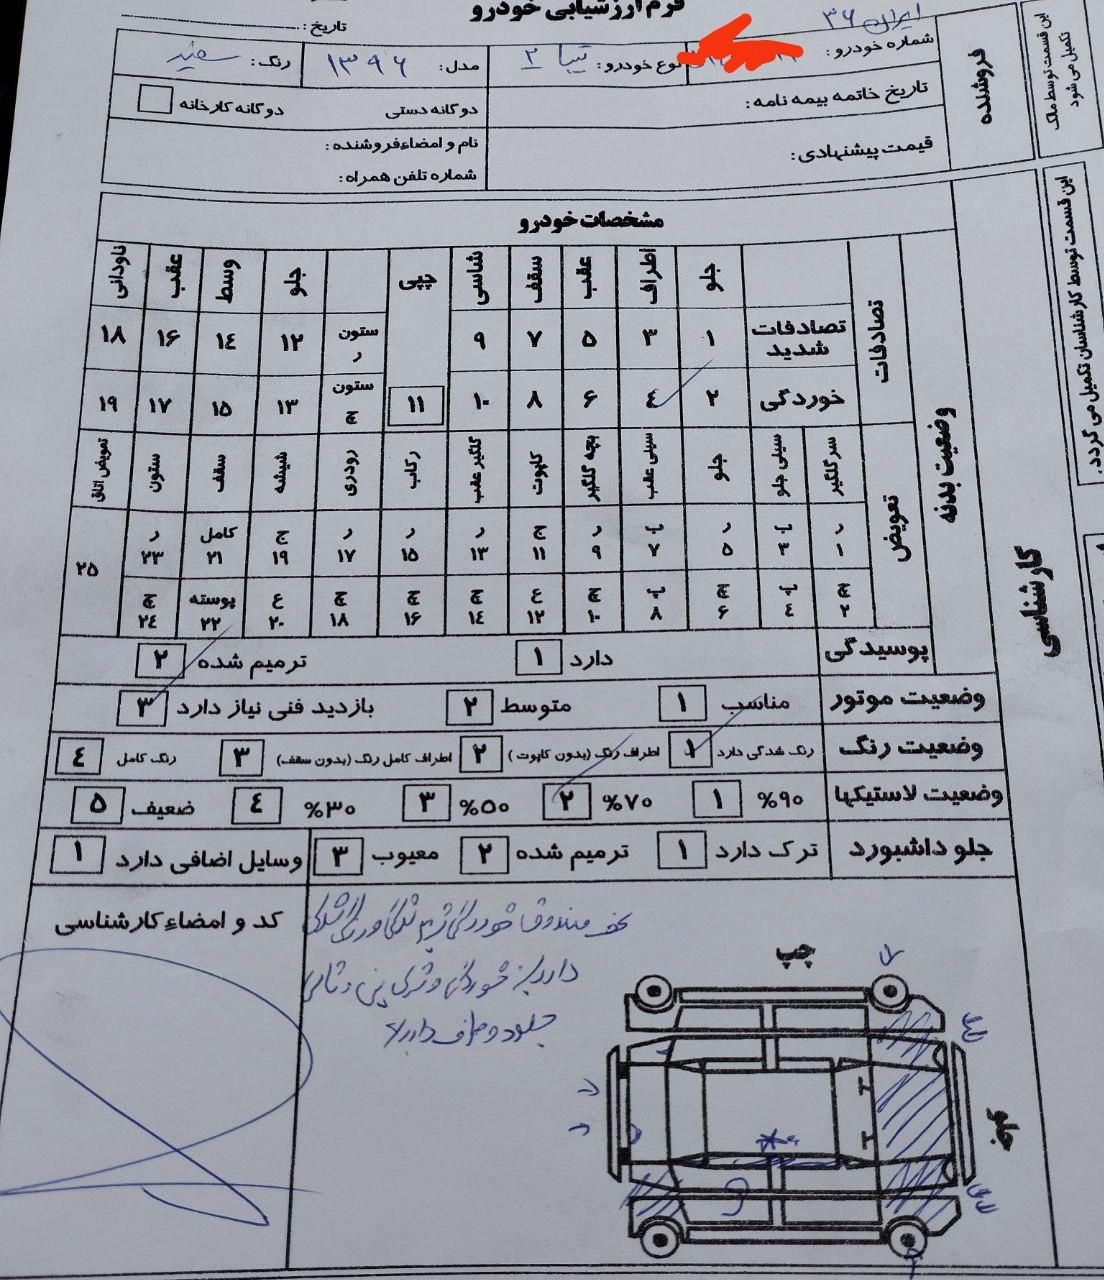 فرم ارزشیابی خودرو
تاریخ:
ایران ۳۶
شماره خودرو:
نوع خودرو: تیبا ۲
مدل: ۱۳۹۶
رنگ: سفید
این قسمت توسط مالک تکمیل می شود
فروشنده
تاریخ خاتمه بیمه نامه:
دوگانه دستی
دوگانه کارخانه
قیمت پیشنهادی:
نام و امضاء فروشنده:
شماره تلفن همراه:
این قسمت توسط کارشناسان تکمیل می گردد.
کارشناسی
مشخصات خودرو
وضعیت بدنه
تصادفات
جلو اطراف عقب سقف شاسی پپی جلو وسط عقب ناودانی
تصادفات شدید ۱ ۳ ۵ ۷ ۹ ستون ر ۱۲ ۱۴ ۱۶ ۱۸
خوردگی ۲ ۴ ۶ ۸ ۱۰ ۱۱ ستون چ ۱۳ ۱۵ ۱۷ ۱۹
تعویض
سر گلگیر سینی جلو جلو سینی عقب بچه گلگیر کاپوت گلگیر عقب رکاب رودری شیشه سقف ستون تعویض اتاق
ر ۱ ۳ ر ۵ ۷ ر ۹ ج ۱۱ ر ۱۳ ر ۱۵ ر ۱۷ ج ۱۹ کامل ۲۱ ر ۲۳ ۲۵
چ ۲ ۴ چ ۶ ۸ چ ۱۰ ع ۱۲ چ ۱۴ چ ۱۶ چ ۱۸ ع ۲۰ پوسته ۲۲ چ ۲۴
پوسیدگی دارد ۱ ترمیم شده ۲
وضعیت موتور مناسب ۱ متوسط ۲ بازدید فنی نیاز دارد ۳
وضعیت رنگ رنگ شدگی دارد ۱ اطراف رنگ (بدون کاپوت) ۲ اطراف کامل رنگ (بدون سقف) ۳ رنگ کامل ۴
وضعیت لاستیکها %۹۰ ۱ %۷۰ ۲ %۵۰ ۳ %۳۰ ۴ ضعیف ۵
جلو داشبورد ترک دارد ۱ ترمیم شده ۲ معیوب ۳ وسایل اضافی دارد ۱
کد و امضاء کارشناسی
صندوق خوردگی
دارد خوردگی و
جلو دو طرف دارد
چپ
عقب